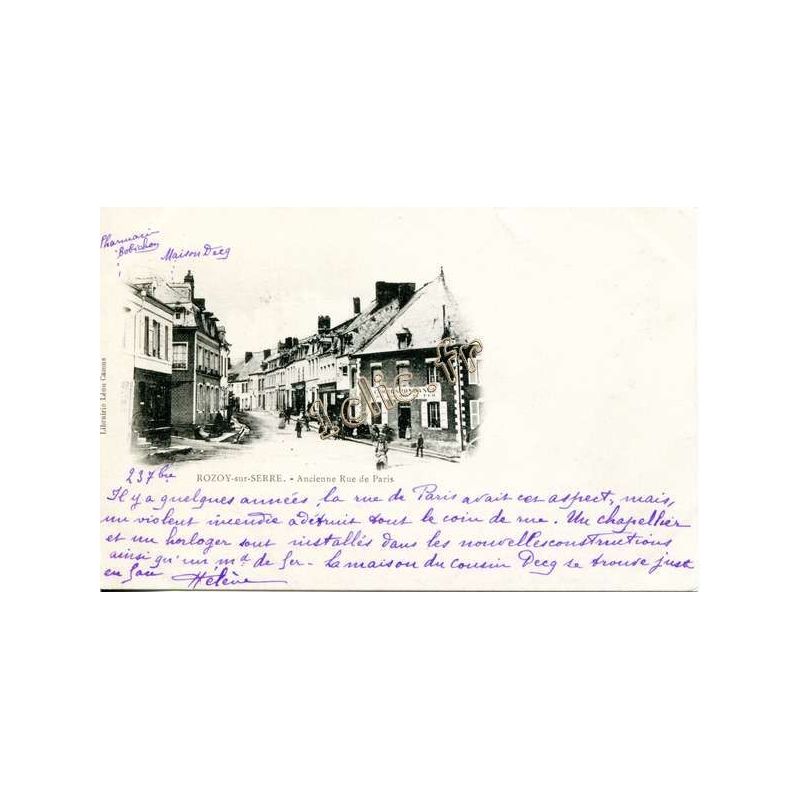 Pharmacie
Bobichon
Maison Decq
Librairie Léon Camus
1clic.fr
ROZOY-sur-SERRE. - Ancienne Rue de Paris
237bre
Il y a quelques années, la rue de Paris avait cet aspect, mais,
un violent incendie a détruit tout le coin de rue. Un chapellier
et un horloger sont installés dans les nouvelles constructions
ainsi qu'un md de fer - La maison du cousin Decq se trouve just
en face Hélène